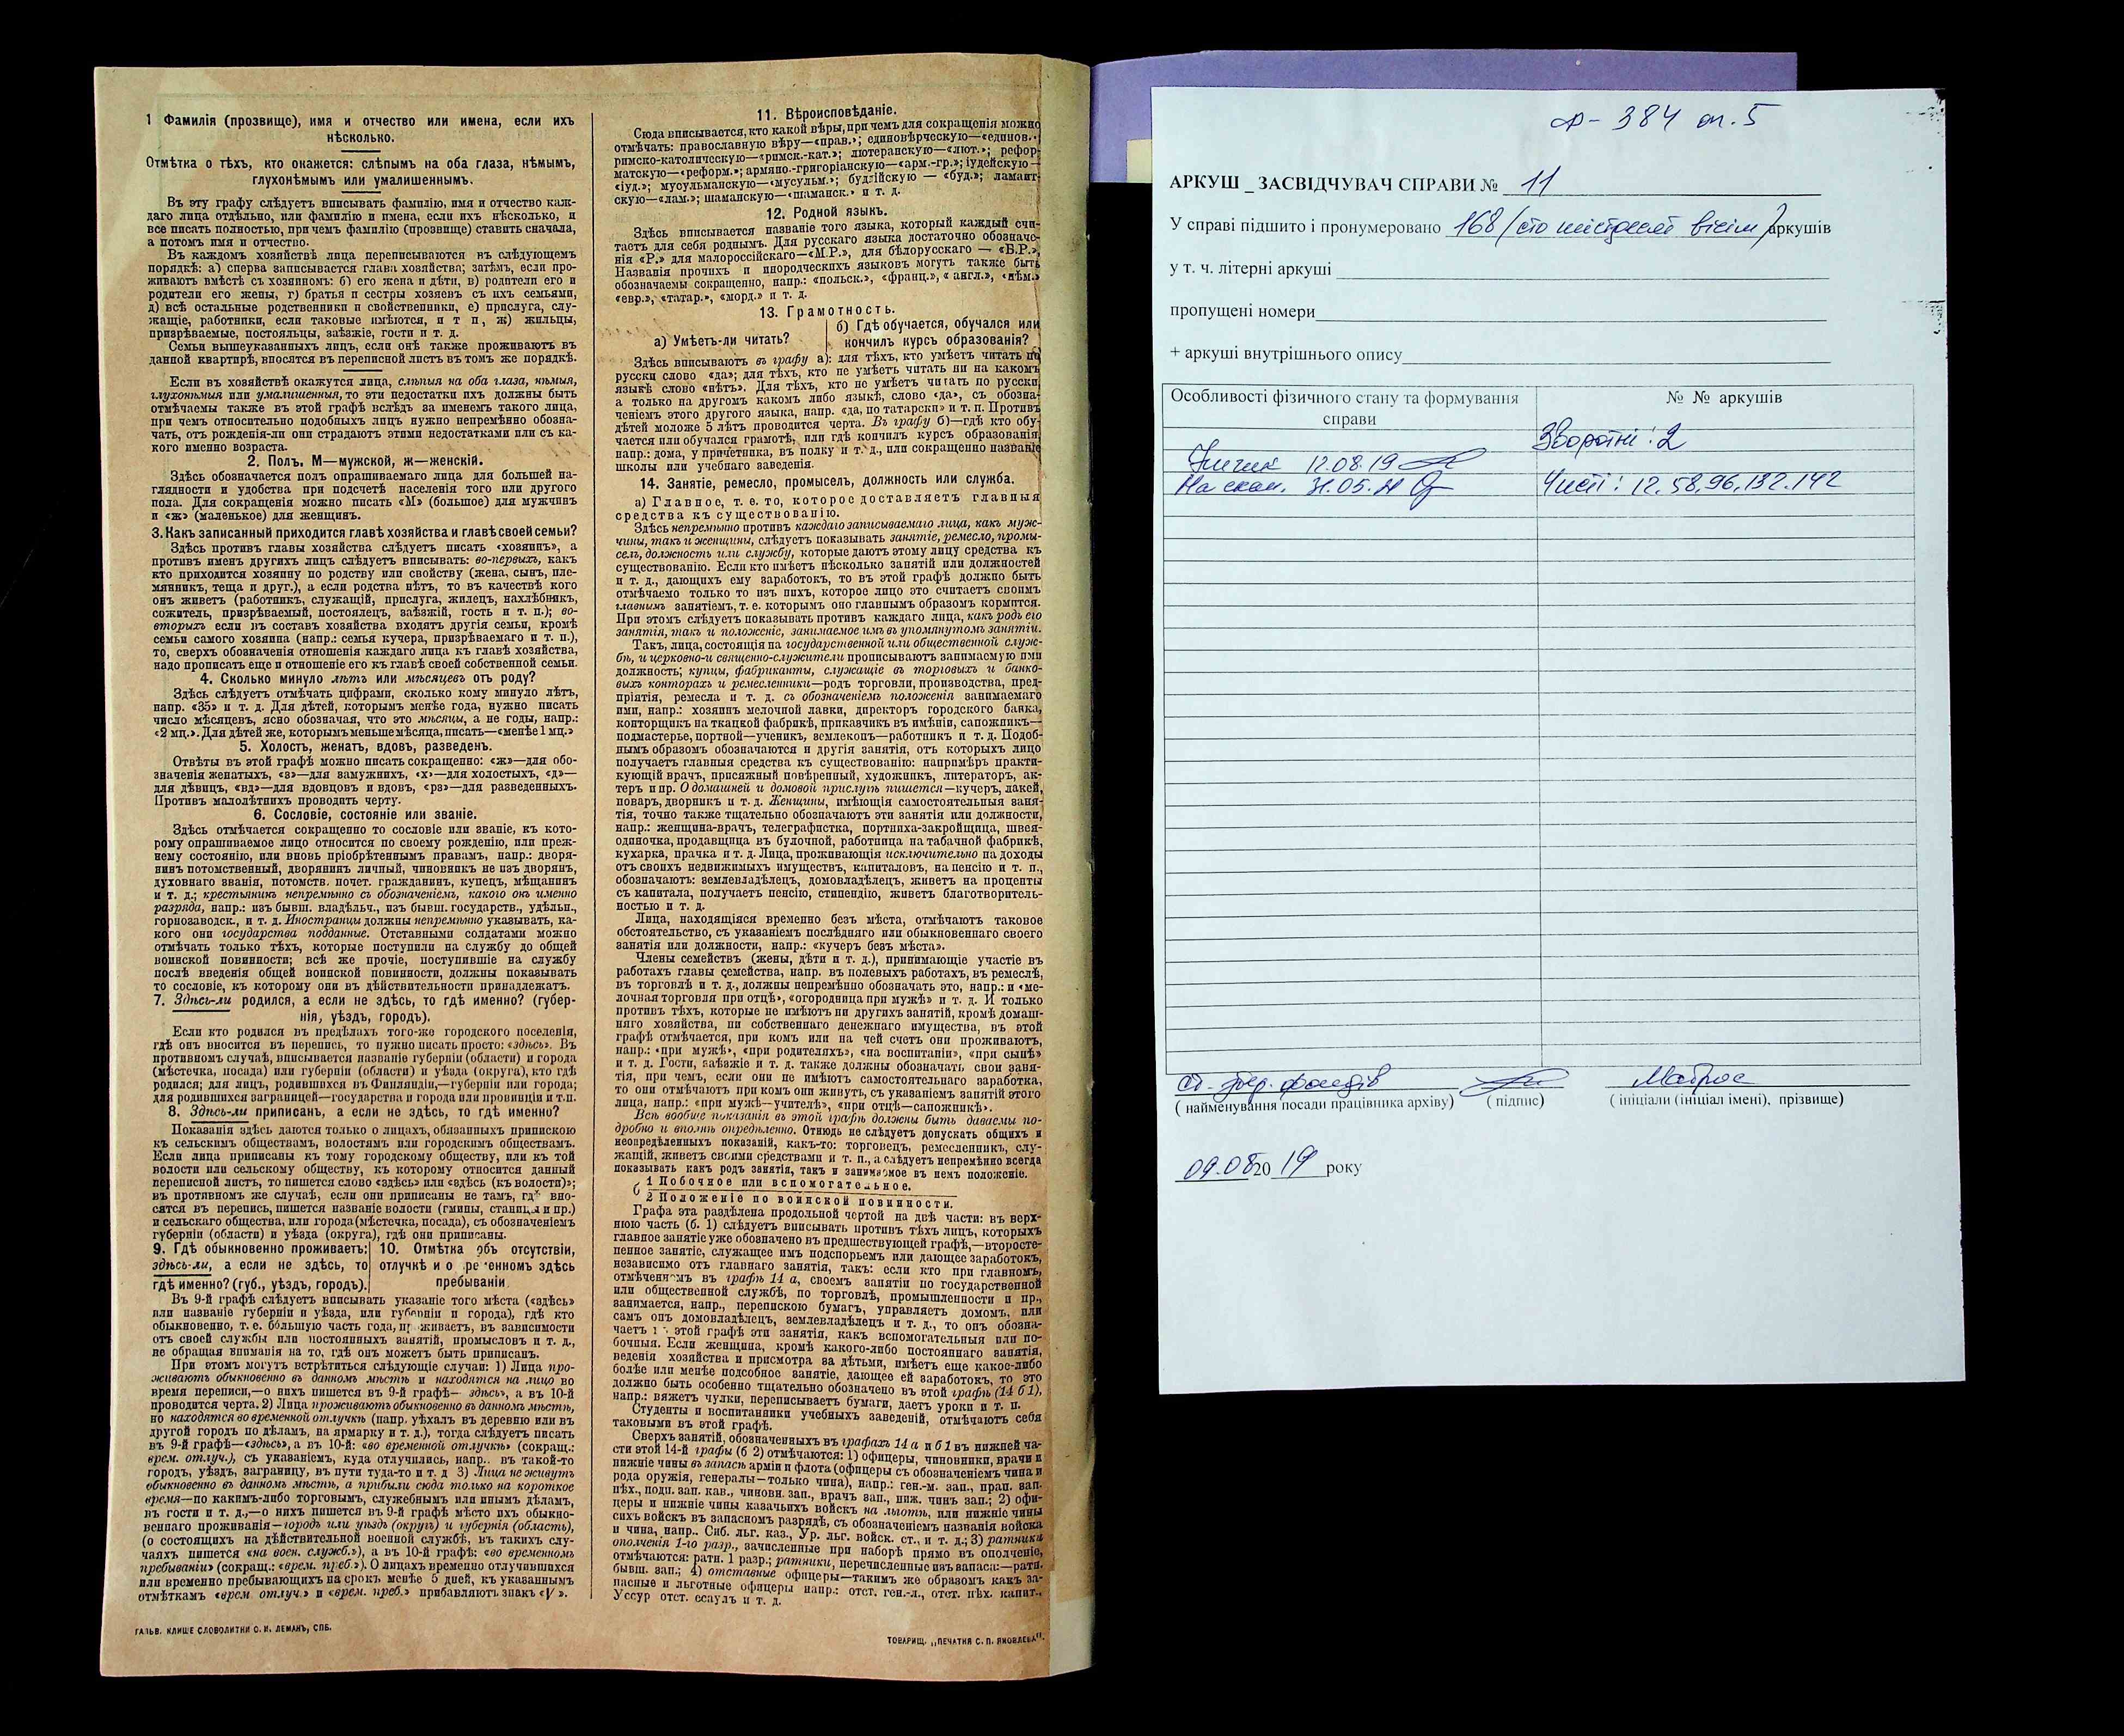 1 Фамилія (прозвище), имя и отчество или имена, если ихъ
нѣсколько.
Отмѣтка о тѣхъ, кто окажется: слѣпымъ на оба глаза, нѣмымъ,
глухонѣмымъ или умалишеннымъ.
Въ эту графу слѣдуетъ вписывать фамилію, имя и отчество каж-
даго лица отдѣльно, или фамилію и имена, если ихъ нѣсколько, и
все писать полностью, при чемъ фамилію (прозвище) ставить сначала,
а потомъ имя и отчество.
Въ каждомъ хозяйствѣ лица переписываются въ слѣдующемъ
порядкѣ: а) сперва записывается глава хозяйства; затѣмъ, если про-
живаютъ вмѣстѣ съ хозяиномъ: б) его жена и дѣти, в) родители его и
родители его жены, г) братья и сестры хозяевъ съ ихъ семьями,
д) всѣ остальные родственники и свойственники, е) прислуга, слу-
жащіе, работники, если таковые имѣются, и т п, ж) жильцы,
призрѣваемые, постояльцы, заѣзжіе, гости и т. д.
Семьи вышеуказанныхъ лицъ, если онѣ также проживаютъ въ
данной квартирѣ, вносятся въ переписной листъ въ томъ же порядкѣ.
Если въ хозяйствѣ окажутся лица, слѣпыя на оба глаза, нѣмыя,
глухонѣмыя или умалишенныя, то эти недостатки ихъ должны быть
отмѣчаемы также въ этой графѣ вслѣдъ за именемъ такого лица,
при чемъ относительно подобныхъ лицъ нужно непремѣнно обозна-
чать, отъ рожденія-ли они страдаютъ этими недостатками или съ ка-
кого именно возраста.
2. Полъ. М—мужской, ж—женскій.
Здѣсь обозначается полъ опрашиваемаго лица для большей на-
глядности и удобства при подсчетѣ населенія того или другого
пола. Для сокращенія можно писать «М» (большое) для мужчинъ
и «ж» (маленькое) для женщинъ.
3. Какъ записанный приходится главѣ хозяйства и главѣ своей семьи?
Здѣсь противъ главы хозяйства слѣдуетъ писать «хозяинъ», а
противъ именъ другихъ лицъ слѣдуетъ вписывать: во-первыхъ, какъ
кто приходится хозяину по родству или свойству (жена, сынъ, пле-
мянникъ, теща и друг.), а если родства нѣтъ, то въ качествѣ кого
онъ живетъ (работникъ, служащій, прислуга, жилецъ, нахлѣбникъ,
сожитель, призрѣваемый, постоялецъ, заѣзжій, гость и т. п.); во-
вторыхъ если въ составъ хозяйства входятъ другія семьи, кромѣ
семьи самого хозяина (напр.: семья кучера, призрѣваемаго и т. п.),
то, сверхъ обозначенія отношенія каждаго лица къ главѣ хозяйства,
надо прописать еще и отношеніе его къ главѣ своей собственной семьи.
4. Сколько минуло лѣтъ или мѣсяцевъ отъ роду?
Здѣсь слѣдуетъ отмѣчать цифрами, сколько кому минуло лѣтъ,
напр. «35» и т. д. Для дѣтей, которымъ менѣе года, нужно писать
число мѣсяцевъ, ясно обозначая, что это мѣсяцы, а не годы, напр.:
«2 мц.». Для дѣтей же, которымъ меньше мѣсяца, писать—«менѣе 1 мц.»
5. Холостъ, женатъ, вдовъ, разведенъ.
Отвѣты въ этой графѣ можно писать сокращенно: «ж»—для обо-
значенія женатыхъ, «з»—для замужнихъ, «х»—для холостыхъ, «д»—
для дѣвицъ, «вд»—для вдовцовъ и вдовъ, «рз»—для разведенныхъ.
Противъ малолѣтнихъ проводить черту.
6. Сословіе, состояніе или званіе.
Здѣсь отмѣчается сокращенно то сословіе или званіе, къ кото-
рому опрашиваемое лицо относится по своему рожденію, или преж-
нему состоянію, или вновь пріобрѣтеннымъ правамъ, напр.: дворя-
нинъ потомственный, дворянинъ личный, чиновникъ не изъ дворянъ,
духовнаго званія, потомств. почет. гражданинъ, купецъ, мѣщанинъ
и т. д.; крестьянинъ непремѣнно съ обозначеніемъ, какого онъ именно
разряда, напр.: изъ бывш. владѣльч., изъ бывш. государств., удѣльн.,
горнозаводск., и т. д. Иностранцы должны непремѣнно указывать, ка-
кого они государства подданные. Отставными солдатами можно
отмѣчать только тѣхъ, которые поступили на службу до общей
воинской повинности; всѣ же прочіе, поступившіе на службу
послѣ введенія общей воинской повинности, должны показывать
то сословіе, къ которому они въ дѣйствительности принадлежатъ.
7. Здѣсь-ли родился, а если не здѣсь, то гдѣ именно? (губер-
нія, уѣздъ, городъ).
Если кто родился въ предѣлахъ того-же городского поселенія,
гдѣ онъ вносится въ перепись, то нужно писать просто: «здѣсь». Въ
противномъ случаѣ, вписывается названіе губерніи (области) и города
(мѣстечка, посада) или губерніи (области) и уѣзда (округа), кто гдѣ
родился; для лицъ, родившихся въ Финляндіи,—губерніи или города;
для родившихся заграницей—государства и города или провинціи и т.п.
8. Здѣсь-ли приписанъ, а если не здѣсь, то гдѣ именно?
Показанія здѣсь даются только о лицахъ, обязанныхъ припискою
къ сельскимъ обществамъ, волостямъ или городскимъ обществамъ.
Если лица приписаны къ тому городскому обществу, или къ той
волости или сельскому обществу, къ которому относится данный
переписной листъ, то пишется слово «здѣсь» или «здѣсь (къ волости)»;
въ противномъ же случаѣ, если они приписаны не тамъ, гдѣ вно-
сятся въ перепись, пишется названіе волости (гмины, станицы и пр.)
и сельскаго общества, или города (мѣстечка, посада), съ обозначеніемъ
губерніи (области) и уѣзда (округа), гдѣ они приписаны.
9. Гдѣ обыкновенно проживаетъ:
здѣсь-ли, а если не здѣсь, то
гдѣ именно? (губ., уѣздъ, городъ).
10. Отмѣтка объ отсутствіи,
отлучкѣ и о временномъ здѣсь
пребываніи
Въ 9-й графѣ слѣдуетъ вписывать указаніе того мѣста («здѣсь»
или названіе губерніи и уѣзда, или губерніи и города), гдѣ кто
обыкновенно, т. е. бо́льшую часть года, проживаетъ, въ зависимости
отъ своей службы или постоянныхъ занятій, промысловъ и т. д.,
не обращая вниманія на то, гдѣ онъ можетъ быть приписанъ.
При этомъ могутъ встрѣтиться слѣдующіе случаи: 1) Лица про-
живаютъ обыкновенно въ данномъ мѣстѣ и находятся на лицо во
время переписи,—о нихъ пишется въ 9-й графѣ— здѣсь», а въ 10-й
проводится черта. 2) Лица проживаютъ обыкновенно въ данномъ мѣстѣ,
но находятся во временной отлучкѣ (напр. уѣхалъ въ деревню или въ
другой городъ по дѣламъ, на ярмарку и т. д.), тогда слѣдуетъ писать
въ 9-й графѣ—«здѣсь», а въ 10-й: «во временной отлучкѣ» (сокращ.:
врем. отлуч.), съ указаніемъ, куда отлучились, напр.. въ такой-то
городъ, уѣздъ, заграницу, въ пути туда-то и т. д 3) Лица не живутъ
обыкновенно въ данномъ мѣстѣ, а прибыли сюда только на короткое
время—по какимъ-либо торговымъ, служебнымъ или инымъ дѣламъ,
въ гости и т. д.,—о нихъ пишется въ 9-й графѣ мѣсто ихъ обыкно-
веннаго проживанія—городъ или уѣздъ (округъ) и губернія (область),
(о состоящихъ на дѣйствительной военной службѣ, въ такихъ слу-
чаяхъ пишется «на воен. служб.»), а въ 10-й графѣ: «во временномъ
пребываніи» (сокращ.: «врем. преб.»). О лицахъ временно отлучившихся
или временно пребывающихъ на срокъ менѣе 5 дней, къ указаннымъ
отмѣткамъ «врем отлуч.» и «врем. преб.» прибавляютъ знакъ «V».
ГАЛЬВ. КЛИШЕ СЛОВОЛИТНИ О. И. ЛЕМАНЪ, СПБ.
11. Вѣроисповѣданіе.
Сюда вписывается, кто какой вѣры, при чемъ для сокращенія можно
отмѣчать: православную вѣру—«прав.»; единовѣрческую—«единов.»
римско-католическую—«римск.-кат.»; лютеранскую—«лют.»; рефор-
матскую—«реформ.»; армяно.-григоріанскую—«арм.-гр.»; іудейскую—
«іуд.»; мусульманскую—«мусульм.»; буддійскую — «буд.»; ламаит-
скую—«лам.»; шаманскую—«шаманск.» и т. д.
12. Родной языкъ.
Здѣсь вписывается названіе того языка, который каждый счи-
таетъ для себя роднымъ. Для русскаго языка достаточно обозначе-
нія «Р.» для малороссійскаго—«М.Р.», для бѣлорусскаго — «Б.Р.»,
Названія прочихъ и инородческихъ языковъ могутъ также быть
обозначаемы сокращенно, напр.: «польск.», «франц.», « англ.», «нѣм.»
«евр.», «татар.», «морд.» и т. д.
13. Грамотность.
а) Умѣетъ-ли читать?
б) Гдѣ обучается, обучался или
кончилъ курсъ образованія?
Здѣсь вписываютъ въ графу а): для тѣхъ, кто умѣетъ читать по
русски слово «да»; для тѣхъ, кто не умѣетъ читать ни на какомъ
языкѣ слово «нѣтъ». Для тѣхъ, кто не умѣетъ читать по русски,
а только на другомъ какомъ либо языкѣ, слово «да», съ обозна-
ченіемъ этого другого языка, напр. «да, по татарски» и т. п. Противъ
дѣтей моложе 5 лѣтъ проводится черта. Въ графу б)—гдѣ кто обу-
чается или обучался грамотѣ, или гдѣ кончилъ курсъ образованія,
напр.: дома, у причетника, въ полку и т. д., или сокращенно названіе
школы или учебнаго заведенія.
14. Занятіе, ремесло, промыселъ, должность или служба.
а) Главное, т. е. то, которое доставляетъ главныя
средства къ существованію.
Здѣсь непремѣнно противъ каждаго записываемаго лица, какъ муж-
чины, такъ и женщины, слѣдуетъ показывать занятіе, ремесло, промы-
селъ, должность или службу, которые даютъ этому лицу средства къ
существованію. Если кто имѣетъ нѣсколько занятій или должностей
и т. д., дающихъ ему заработокъ, то въ этой графѣ должно быть
отмѣчаемо только то изъ нихъ, которое лицо это считаетъ своимъ
главнымъ занятіемъ, т. е. которымъ оно главнымъ образомъ кормится.
При этомъ слѣдуетъ показывать противъ каждаго лица, какъ родъ его
занятія, такъ и положеніе, занимаемое имъ въ упомянутомъ занятіи.
Такъ, лица, состоящія на государственной или общественной служ-
бѣ, и церковно-и священно-служители прописываютъ занимаемую ими
должность; купцы, фабриканты, служащіе въ торговыхъ и банко-
выхъ конторахъ и ремесленники—родъ торговли, производства, пред-
пріятія, ремесла и т. д. съ обозначеніемъ положенія занимаемаго
ими, напр.: хозяинъ мелочной лавки, директоръ городского банка,
конторщикъ на ткацкой фабрикѣ, приказчикъ въ имѣніи, сапожникъ—
подмастерье, портной—ученикъ, землекопъ—работникъ и т. д. Подоб-
нымъ образомъ обозначаются и другія занятія, отъ которыхъ лицо
получаетъ главныя средства къ существованію: напримѣръ практи-
кующій врачъ, присяжный повѣренный, художникъ, литераторъ, ак-
теръ и пр. О домашней и домовой прислугѣ пишется—кучеръ, лакей,
поваръ, дворникъ и т. д. Женщины, имѣющія самостоятельныя заня-
тія, точно также тщательно обозначаютъ эти занятія или должности,
напр.: женщина-врачъ, телеграфистка, портниха-закройщица, швея-
одиночка, продавщица въ булочной, работница на табачной фабрикѣ,
кухарка, прачка и т. д. Лица, проживающія исключительно на доходы
отъ своихъ недвижимыхъ имуществъ, капиталовъ, на пенсію и т. п.,
обозначаютъ: землевладѣлецъ, домовладѣлецъ, живетъ на проценты
съ капитала, получаетъ пенсію, стипендію, живетъ благотворитель-
ностью и т. д.
Лица, находящіяся временно безъ мѣста, отмѣчаютъ таковое
обстоятельство, съ указаніемъ послѣдняго или обыкновеннаго своего
занятія или должности, напр.: «кучеръ безъ мѣста».
Члены семействъ (жены, дѣти и т. д.), принимающіе участіе въ
работахъ главы семейства, напр. въ полевыхъ работахъ, въ ремеслѣ,
въ торговлѣ и т. д., должны непремѣнно обозначать это, напр.: и «ме-
лочная торговля при отцѣ», «огородница при мужѣ» и т. д. И только
противъ тѣхъ, которые не имѣютъ ни другихъ занятій, кромѣ домаш-
няго хозяйства, ни собственнаго денежнаго имущества, въ этой
графѣ отмѣчается, при комъ или на чей счетъ они проживаютъ,
напр.: «при мужѣ», «при родителяхъ», «на воспитаніи», «при сынѣ»
и т. д. Гости, заѣзжіе и т. д. также должны обозначать свои заня-
тія, при чемъ, если они не имѣютъ самостоятельнаго заработка,
то они отмѣчаютъ при комъ они живутъ, съ указаніемъ занятій этого
лица, напр.: «при мужѣ—учителѣ», «при отцѣ—сапожникѣ».
Всѣ вообще показанія въ этой графѣ должны быть даваемы по-
дробно и вполнѣ опредѣленно. Отнюдь не слѣдуетъ допускать общихъ и
неопредѣленныхъ показаній, какъ-то: торговецъ, ремесленникъ, слу-
жащій, живетъ своими средствами и т. п., а слѣдуетъ непремѣнно всегда
показывать какъ родъ занятія, такъ и занимаемое въ немъ положеніе.
б 1 Побочное или вспомогательное.
2 Положеніе по воинской повинности.
Графа эта раздѣлена продольной чертой на двѣ части: въ верх-
нюю часть (б. 1) слѣдуетъ вписывать противъ тѣхъ лицъ, которыхъ
главное занятіе уже обозначено въ предшествующей графѣ,—второсте-
пенное занятіе, служащее имъ подспорьемъ или дающее заработокъ,
независимо отъ главнаго занятія, такъ: если кто при главномъ,
отмѣченномъ въ графѣ 14 а, своемъ занятіи по государственной
или общественной службѣ, по торговлѣ, промышленности и пр.,
занимается, напр., перепискою бумагъ, управляетъ домомъ, или
самъ онъ домовладѣлецъ, землевладѣлецъ и т. д., то онъ обозна-
чаетъ въ этой графѣ эти занятія, какъ вспомогательныя или по-
бочныя. Если женщина, кромѣ какого-либо постояннаго занятія,
веденія хозяйства и присмотра за дѣтьми, имѣетъ еще какое-либо
болѣе или менѣе подсобное занятіе, дающее ей заработокъ, то это
должно быть особенно тщательно обозначено въ этой графѣ (14 б 1),
напр.: вяжетъ чулки, переписываетъ бумаги, даетъ уроки и т. п.
Студенты и воспитанники учебныхъ заведеній, отмѣчаютъ себя
таковыми въ этой графѣ.
Сверхъ занятій, обозначенныхъ въ графахъ 14 а и б 1 въ нижней ча-
сти этой 14-й графы (б 2) отмѣчаются: 1) офицеры, чиновники, врачи и
нижніе чины въ запасѣ арміи и флота (офицеры съ обозначеніемъ чина и
рода оружія, генералы—только чина), напр.: ген.-м. зап., прап. зап.
пѣх., подп. зап. кав., чиновн. зап., врачъ зап., ниж. чинъ зап.; 2) офи-
церы и нижніе чины казачьихъ войскъ на льготѣ, или нижніе чины
сихъ войскъ въ запасномъ разрядѣ, съ обозначеніемъ названія войска
и чина, напр.. Сиб. льг. каз., Ур. льг. войск. ст., и т. д.; 3) ратники
ополченія 1-го разр., зачисленные при наборѣ прямо въ ополченіе,
отмѣчаются: ратн. 1 разр.; ратники, перечисленные изъ запаса:—ратн.
бывш. зап.; 4) отставные офицеры—такимъ же образомъ какъ за-
пасные и льготные офицеры напр.: отст. ген.-л., отст. пѣх. капит.,
Уссур отст. есаулъ и т. д.
ТОВАРИЩ. „ПЕЧАТНЯ С. П. ЯКОВЛЕВА".
ф- 384 оп. 5
АРКУШ _ ЗАСВІДЧУВАЧ СПРАВИ № 11
У справі підшито і пронумеровано 168 (сто шістдесят вісім) аркушів
у т. ч. літерні аркуші
пропущені номери
+ аркуші внутрішнього опису
Особливості фізичного стану та формування
справи
№ № аркушів
Зворотні: 2
12.08.19
На скан.
Чисті: 12,58,96,132,142
фондів
( найменування посади працівника архіву) ( підпис) ( ініціали (ініціал імені), прізвище)
09.08 20 19 року